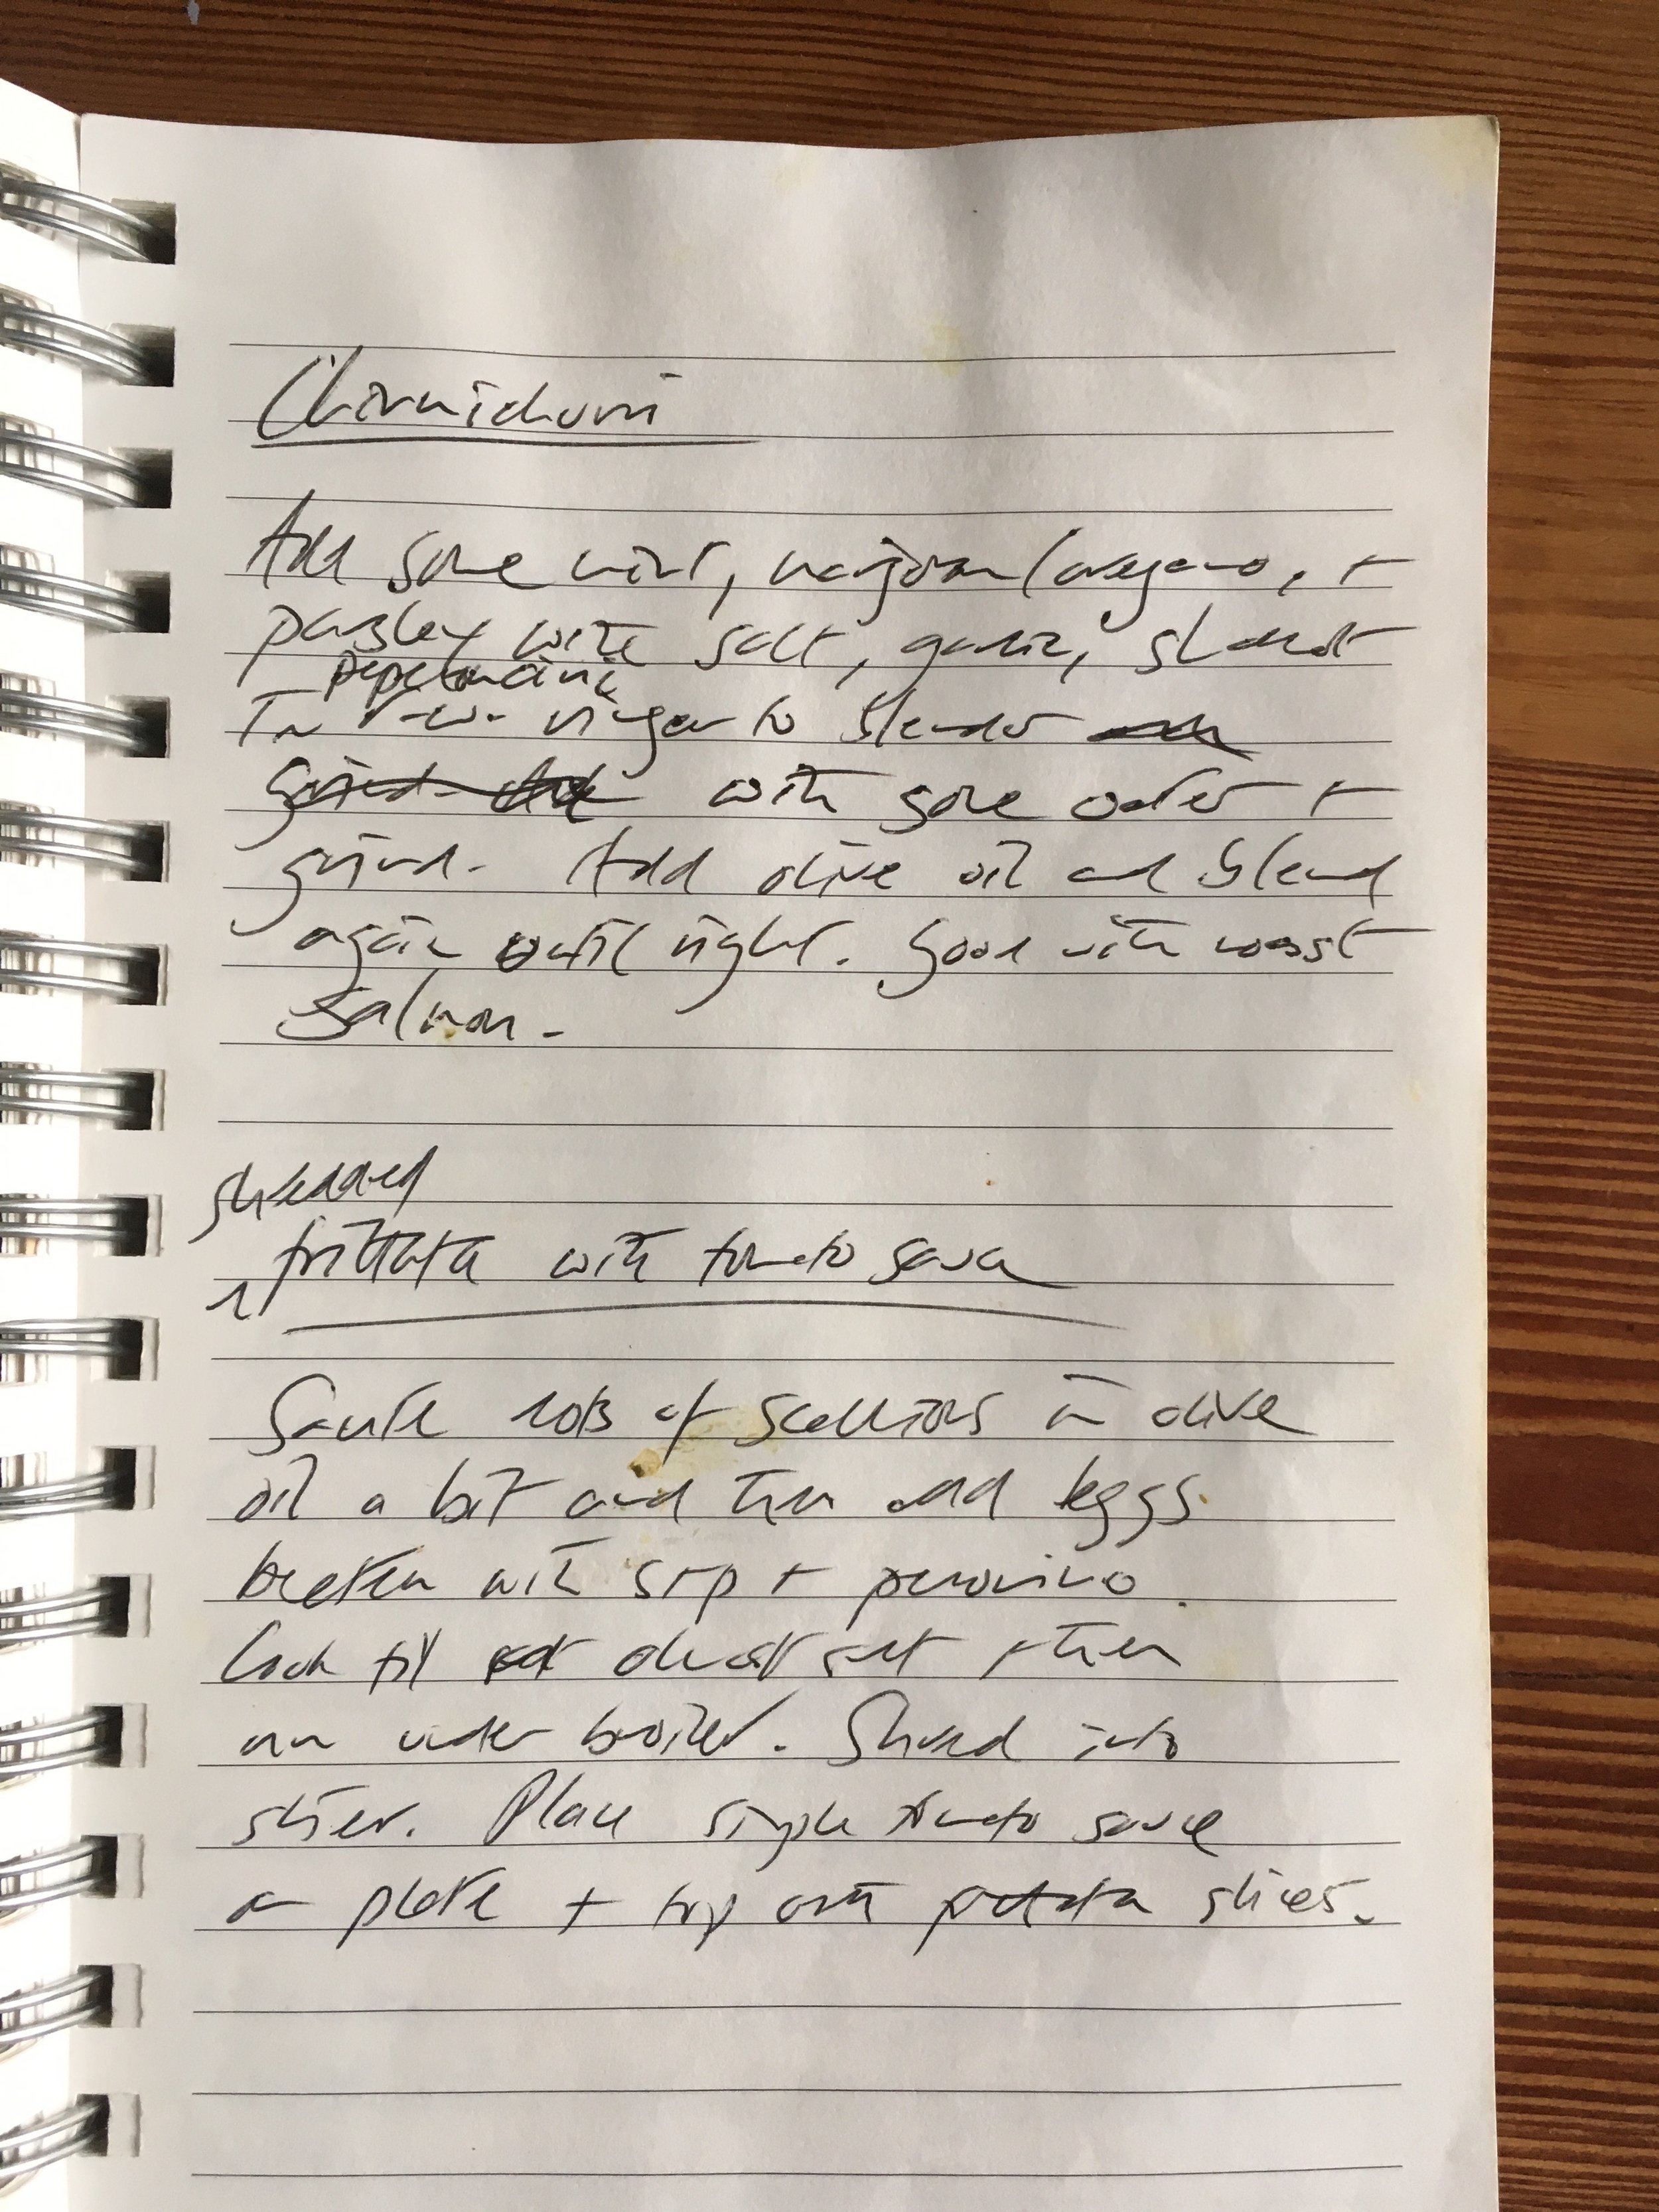 Chimichurri
Add some mint, marjoram/oregano, +
parsley with salt, garlic, shallot
peperoncini,
in vinegar to blender
with some water +
grind. Add olive oil and blend
again until right. Good with roast
salmon.
shredded
frittata with tomato sauce
Saute lots of scallions in olive
oil a bit and then add eggs
beaten with s+p + pecorino.
Cook til almost set + then
run under broiler. Shred into
slices. Place simple tomato sauce
on plate + top with frittata slices.